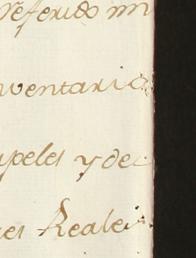 referido in
nventario
apeles y de
es Reales